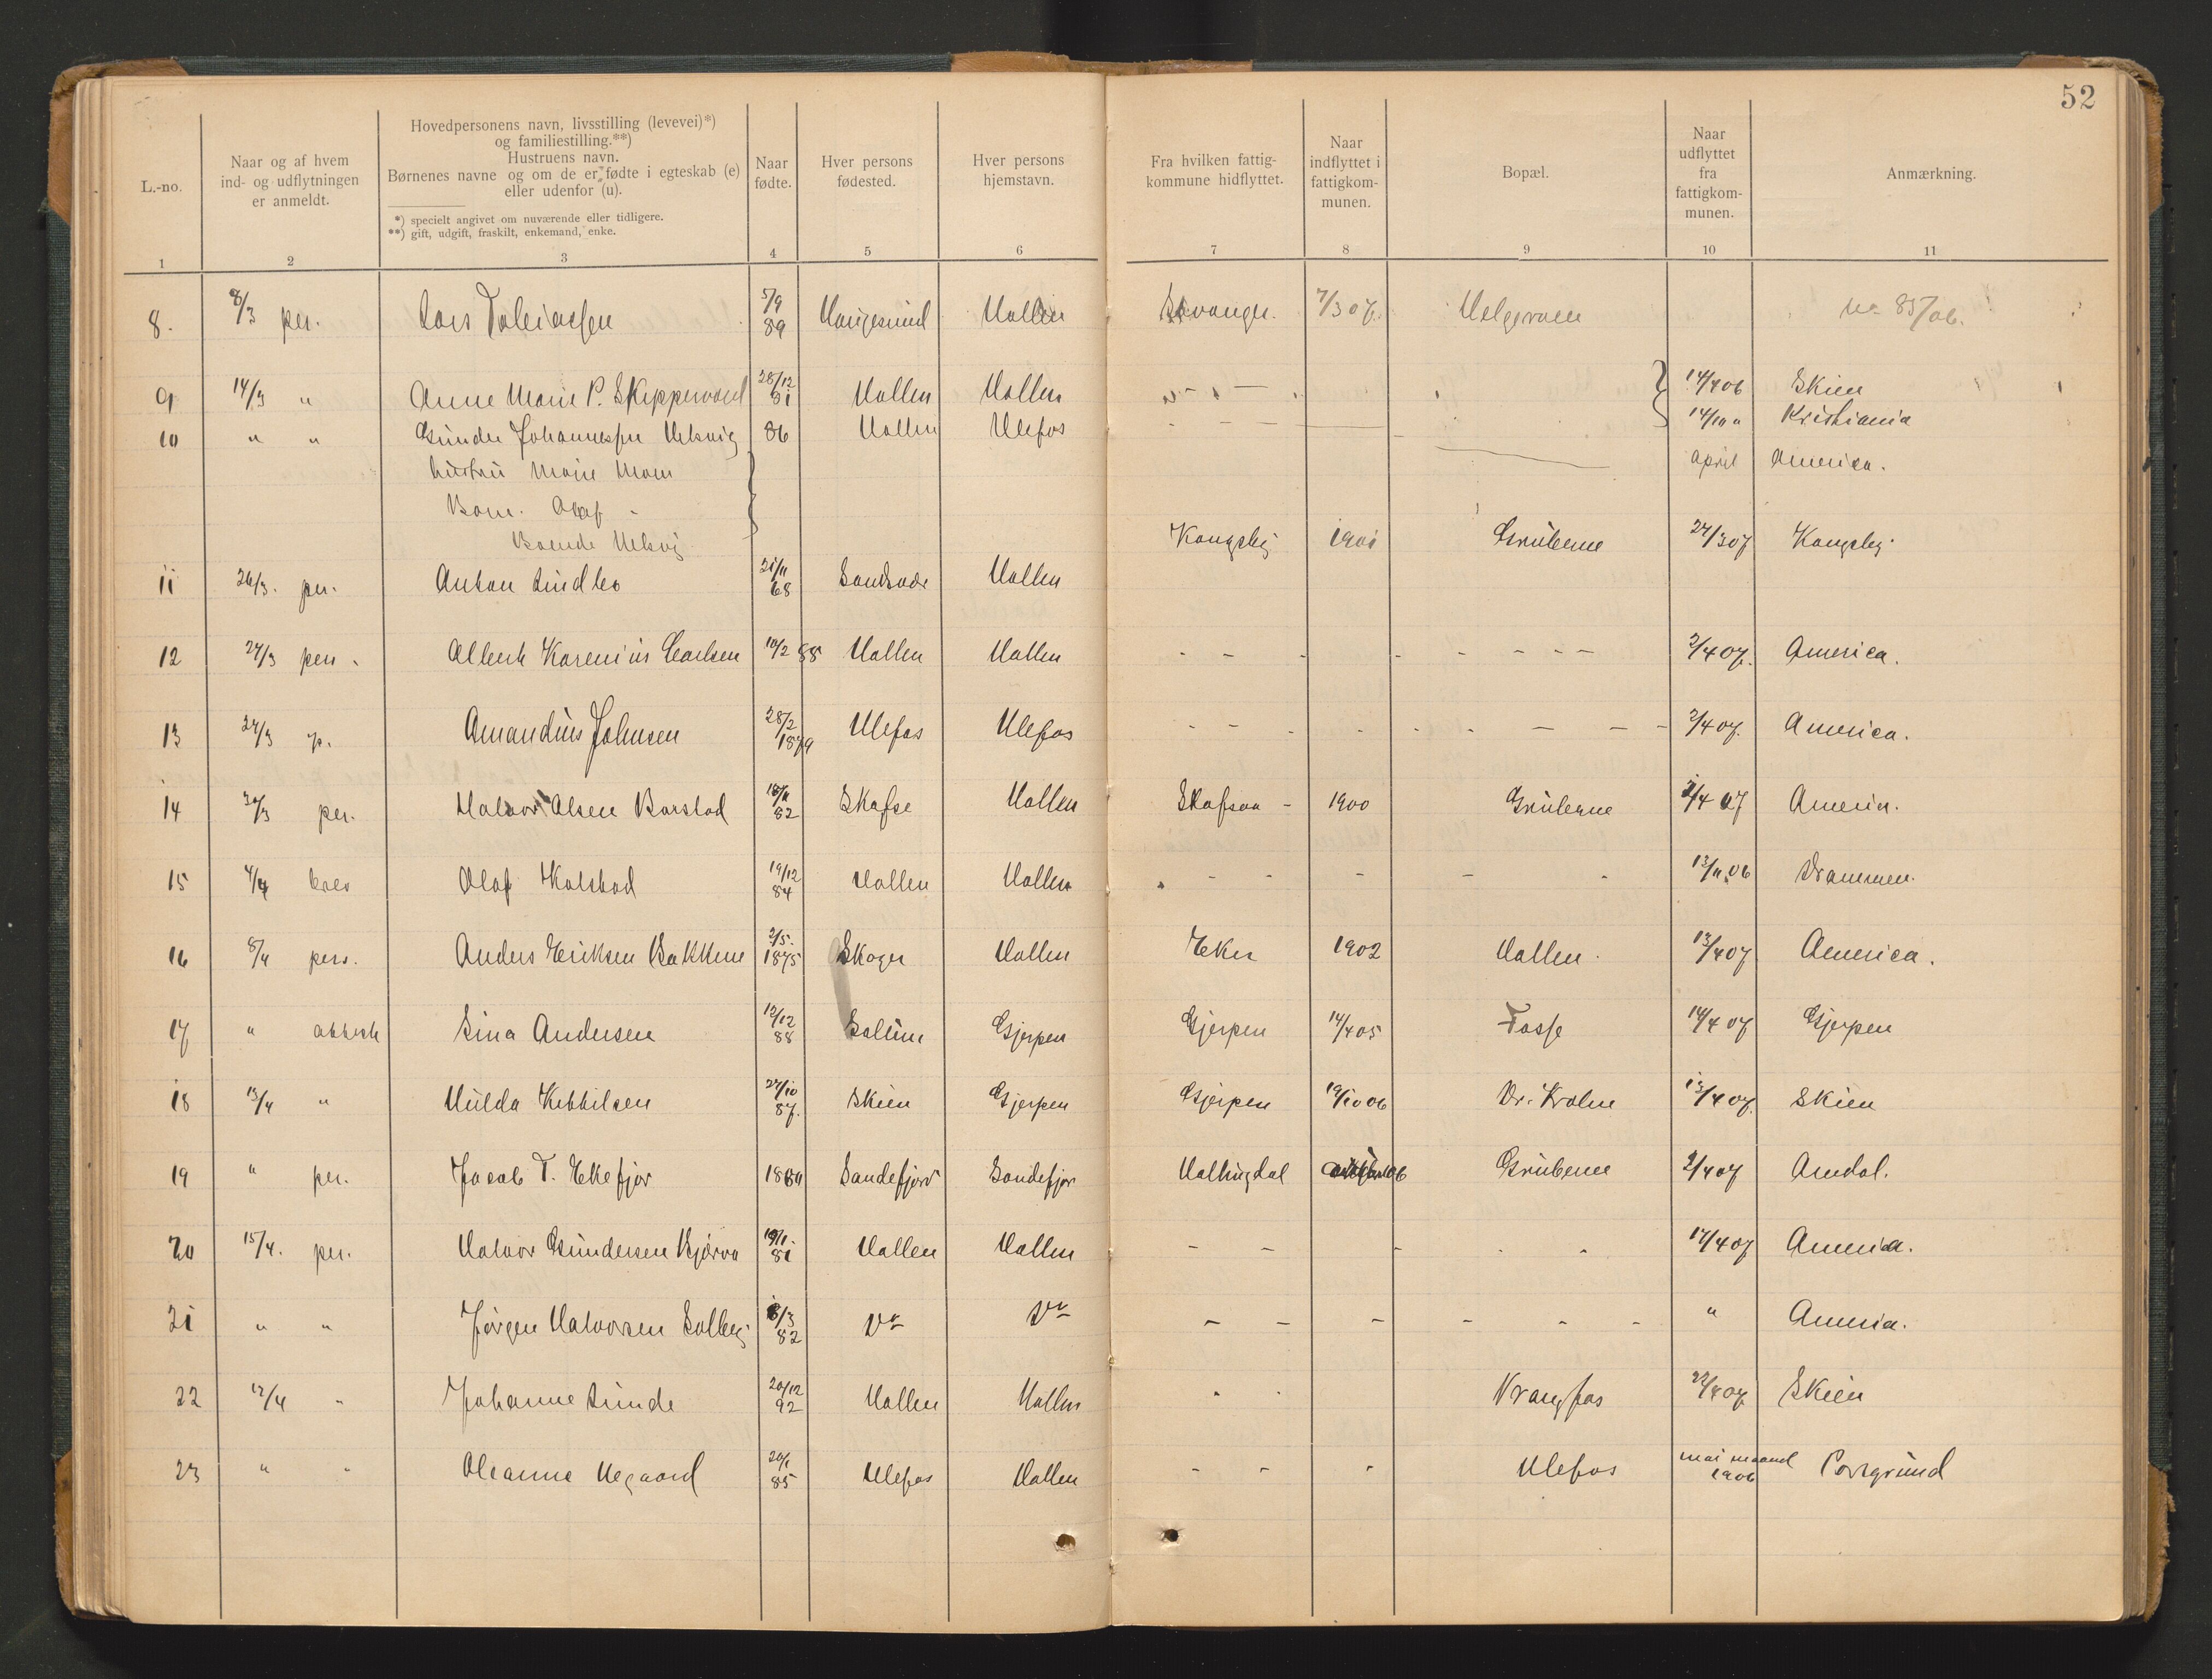 52
L.-no.
Naar og af hvem
ind- og udflytningen
er anmeldt.
Hovedpersonens navn, livsstilling (levevei)*)
og familiestilling.**)
Hustruens navn.
Børnenes navne og om de er fødte i egteskab (e)
eller udenfor (u).
*) specielt angivet om nuværende eller tidligere.
**) gift, udgift, fraskilt, enkemand, enke.
Naar
fødte.
Hver persons
fødested.
Hver persons
hjemstavn.
Fra hvilken fattig-
kommune hidflyttet.
Naar
indflyttet i
fattigkom-
munen.
Bopæl.
Naar
udflyttet
fra
fattigkom-
munen.
Anmærkning.
1 2 3 4 5 6 7 8 9 10 11
8. 8/3 per. Lars 5/9 89 Haugesund Hollen Stavanger 7/3 07. Helgeroen No 85/06.
9 14/3 " Anne Marie P. Skippervold 28/12 81 Hollen Hollen 14/4 06 Skien
14/10 " Kristiania
10 " " Gunder Johannessen 86 Hollen Ulefos april America.
hustru
Barn. Olaf -
11 26/3. per. Anton Lindbo 21/11 68 Sandsvær Hollen Kongsbg 1901 Gruberne 27/3 07 Kongsbg
12 27/3 pers. Albert Karenius Carlsen 10/2 88 Hollen Hollen - - - - - - - 2/4 07. America.
13 27/3 p. Amandius Johnsen 28/2 1879 Ulefos Ulefos - - - - - - - - 2/4 07. America.
14 30/3 per. Halvor Olsen Barstad 18/11 82 Skafse Hollen Skafsaa - 1900 Gruberne 2/4 07 America.
15 4/4 brev Olaf Kolstad 19/12 84 Hollen Hollen - - - - 13/11 06 Drammen.
16 8/4 pers. Anders Eriksen Bakkene 2/5. 1875 Skoger Hollen Eker 1902 Hollen. 13/4 07 America.
17 " attest Sina Andersen 12/12 88 Solum Gjerpen Gjerpen 14/4 05 Fosse 14/4 07 Gjerpen
18 13/4 " Hulda Kittilsen 27/10 87. Skien Gjerpen Gjerpen 19/10 06 Dr. 13/4 07. Skien
19 " per. Jacob T. Ekefjor Sandefjord Sandefjor Hallingdal Gruberne 2/4 07 Amdal.
20 15/4. per. Halvor Gundersen 19/1. 81 Hollen Hollen - - - 17/4 07 America.
21 " " Jørgen Halvorsen Solbeg 8/3 82 Do Do - - - - - - " America.
22 12/4 - Johanne Lunde 20/12 92 Hollen Hollen Vrangfos 22/4 07 Skien
23 " - Oleanne Hegaard 20/1 85 Ulefos Hollen - - - Ulefos mai maaned 1906 Porsgrund